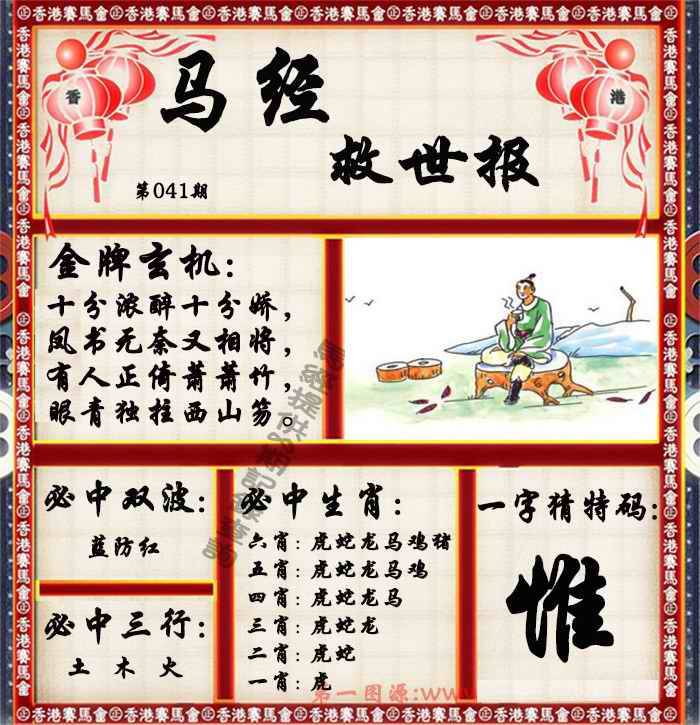 香港賽馬會
香
港
马经
救世报
第041期
金牌玄机：
十分浓醉十分娇，
凤书无奈又相将，
有人正倚萧萧竹，
眼青独拄西山笏。
必中双波：
蓝防红
必中三行：
土 木 火
必中生肖：
六肖：虎蛇龙马鸡猪
五肖：虎蛇龙马鸡
四肖：虎蛇龙马
三肖：虎蛇龙
二肖：虎蛇
一肖：虎
一字猜特码：
惟
第一图源：www